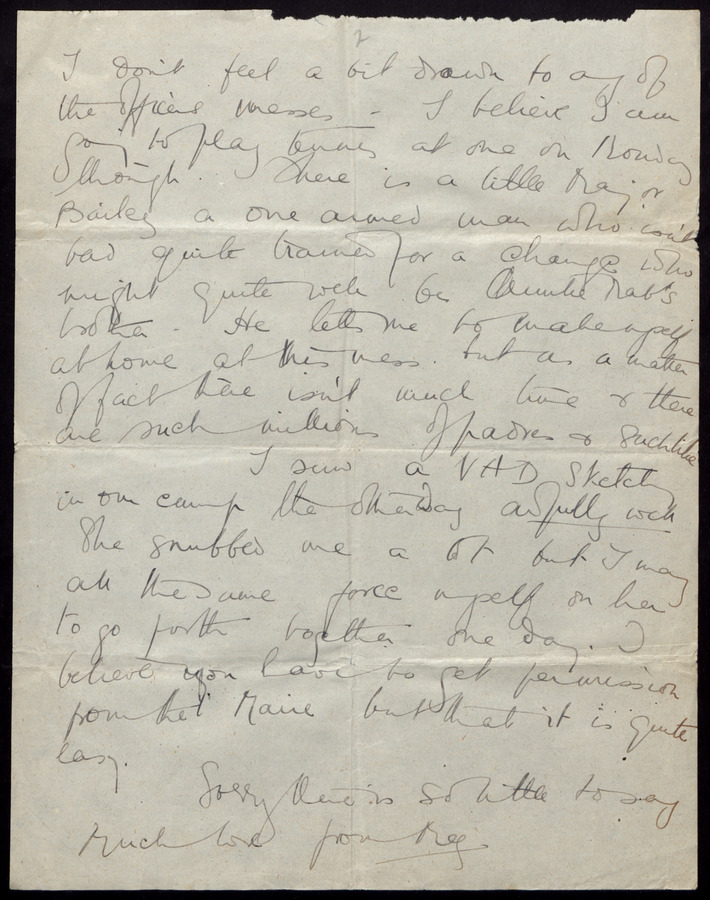 2
I don't feel a bit drawn to any of
the officers messes - I believe I am
going to play tennis at one on Monday
though. There is a little Major
Bailey a one armed man who isn't
bad quite trained for a change who
might quite well be Auntie Mab's
brother - He tells me to make myself
at home at this mess. but as a matter
of fact there isn't much time & there
are such millions of padres & suchlike
I saw a VAD sketching
in our camp the other day awfully well
She snubbed me a bit but I may
all the same force myself on her
to go forth together one day. I
believe you have to get permission
from the Maire but that it is quite
easy.
Sorry there is so little to say
Much love from